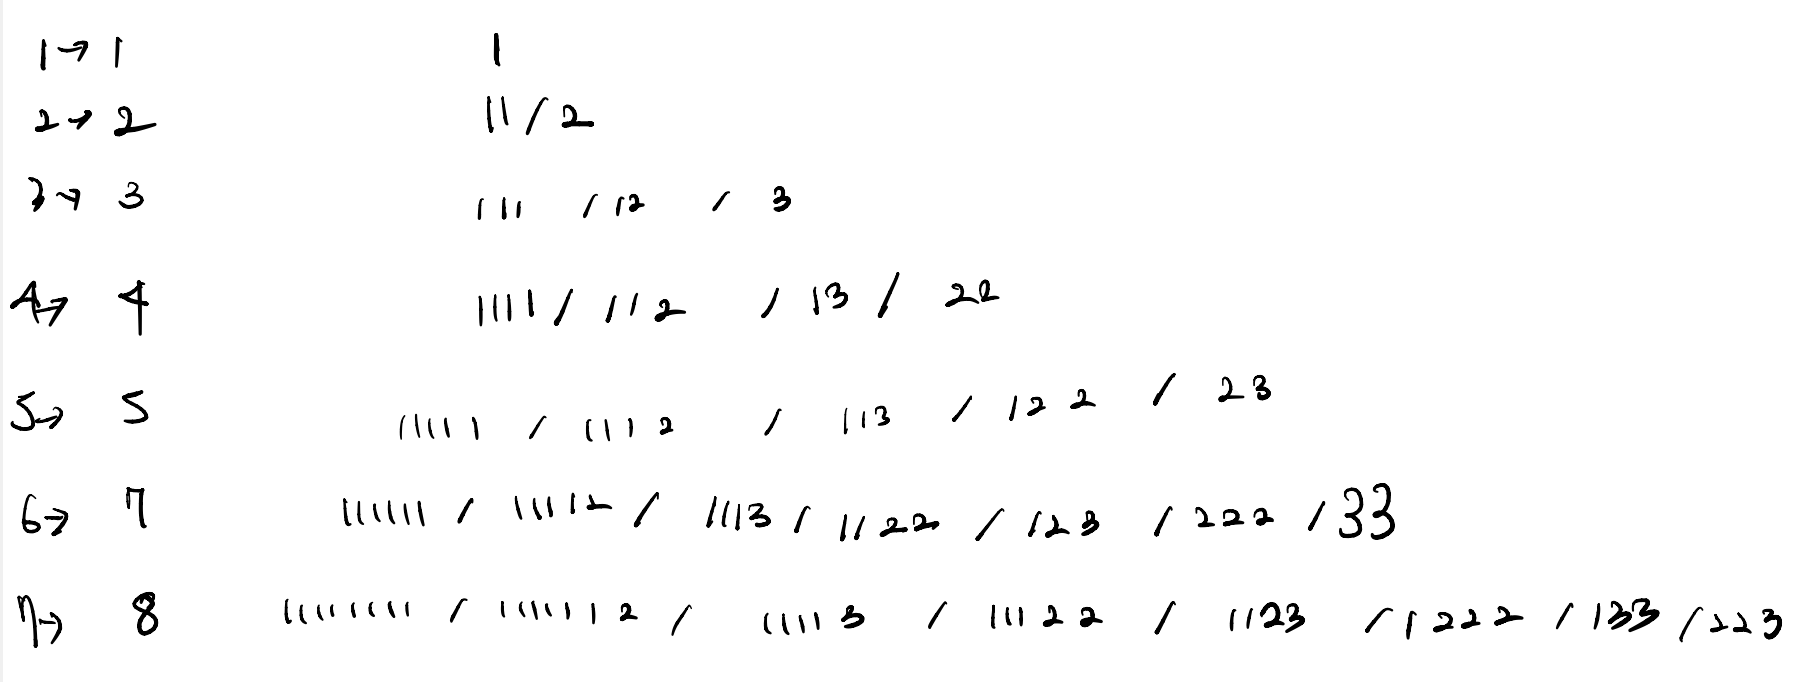 1→ 1 1
2→ 2 11 / 2
3→ 3 111 / 12 / 3
4→ 4 1111 / 112 / 13 / 22
5→ 5 11111 / 1112 / 113 / 122 / 23
6→ 7 111111 / 11112 / 1113 / 1122 / 123 / 222 / 33
7→ 8 11111111 / 111112 / 11113 / 11122 / 1123 / 1222 / 133 / 223